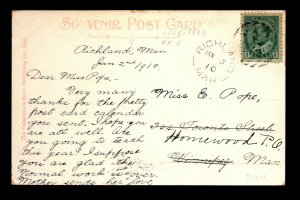 SOUVENIR POST CARD
Richland, Man
Jan 2nd 1910.
Dear Miss Pope,
Very many
thanks for the pretty
post card calendar
you sent. I hope you
are all well. Are
you going to teach
this year. I suppose
you are glad the
Normal work is over.
Mother sends her love
RICHLAND
JAN 3
10
MAN
Miss E. Pope,
300 Toronto Street
Homewood P.O.
Winnipeg Man.